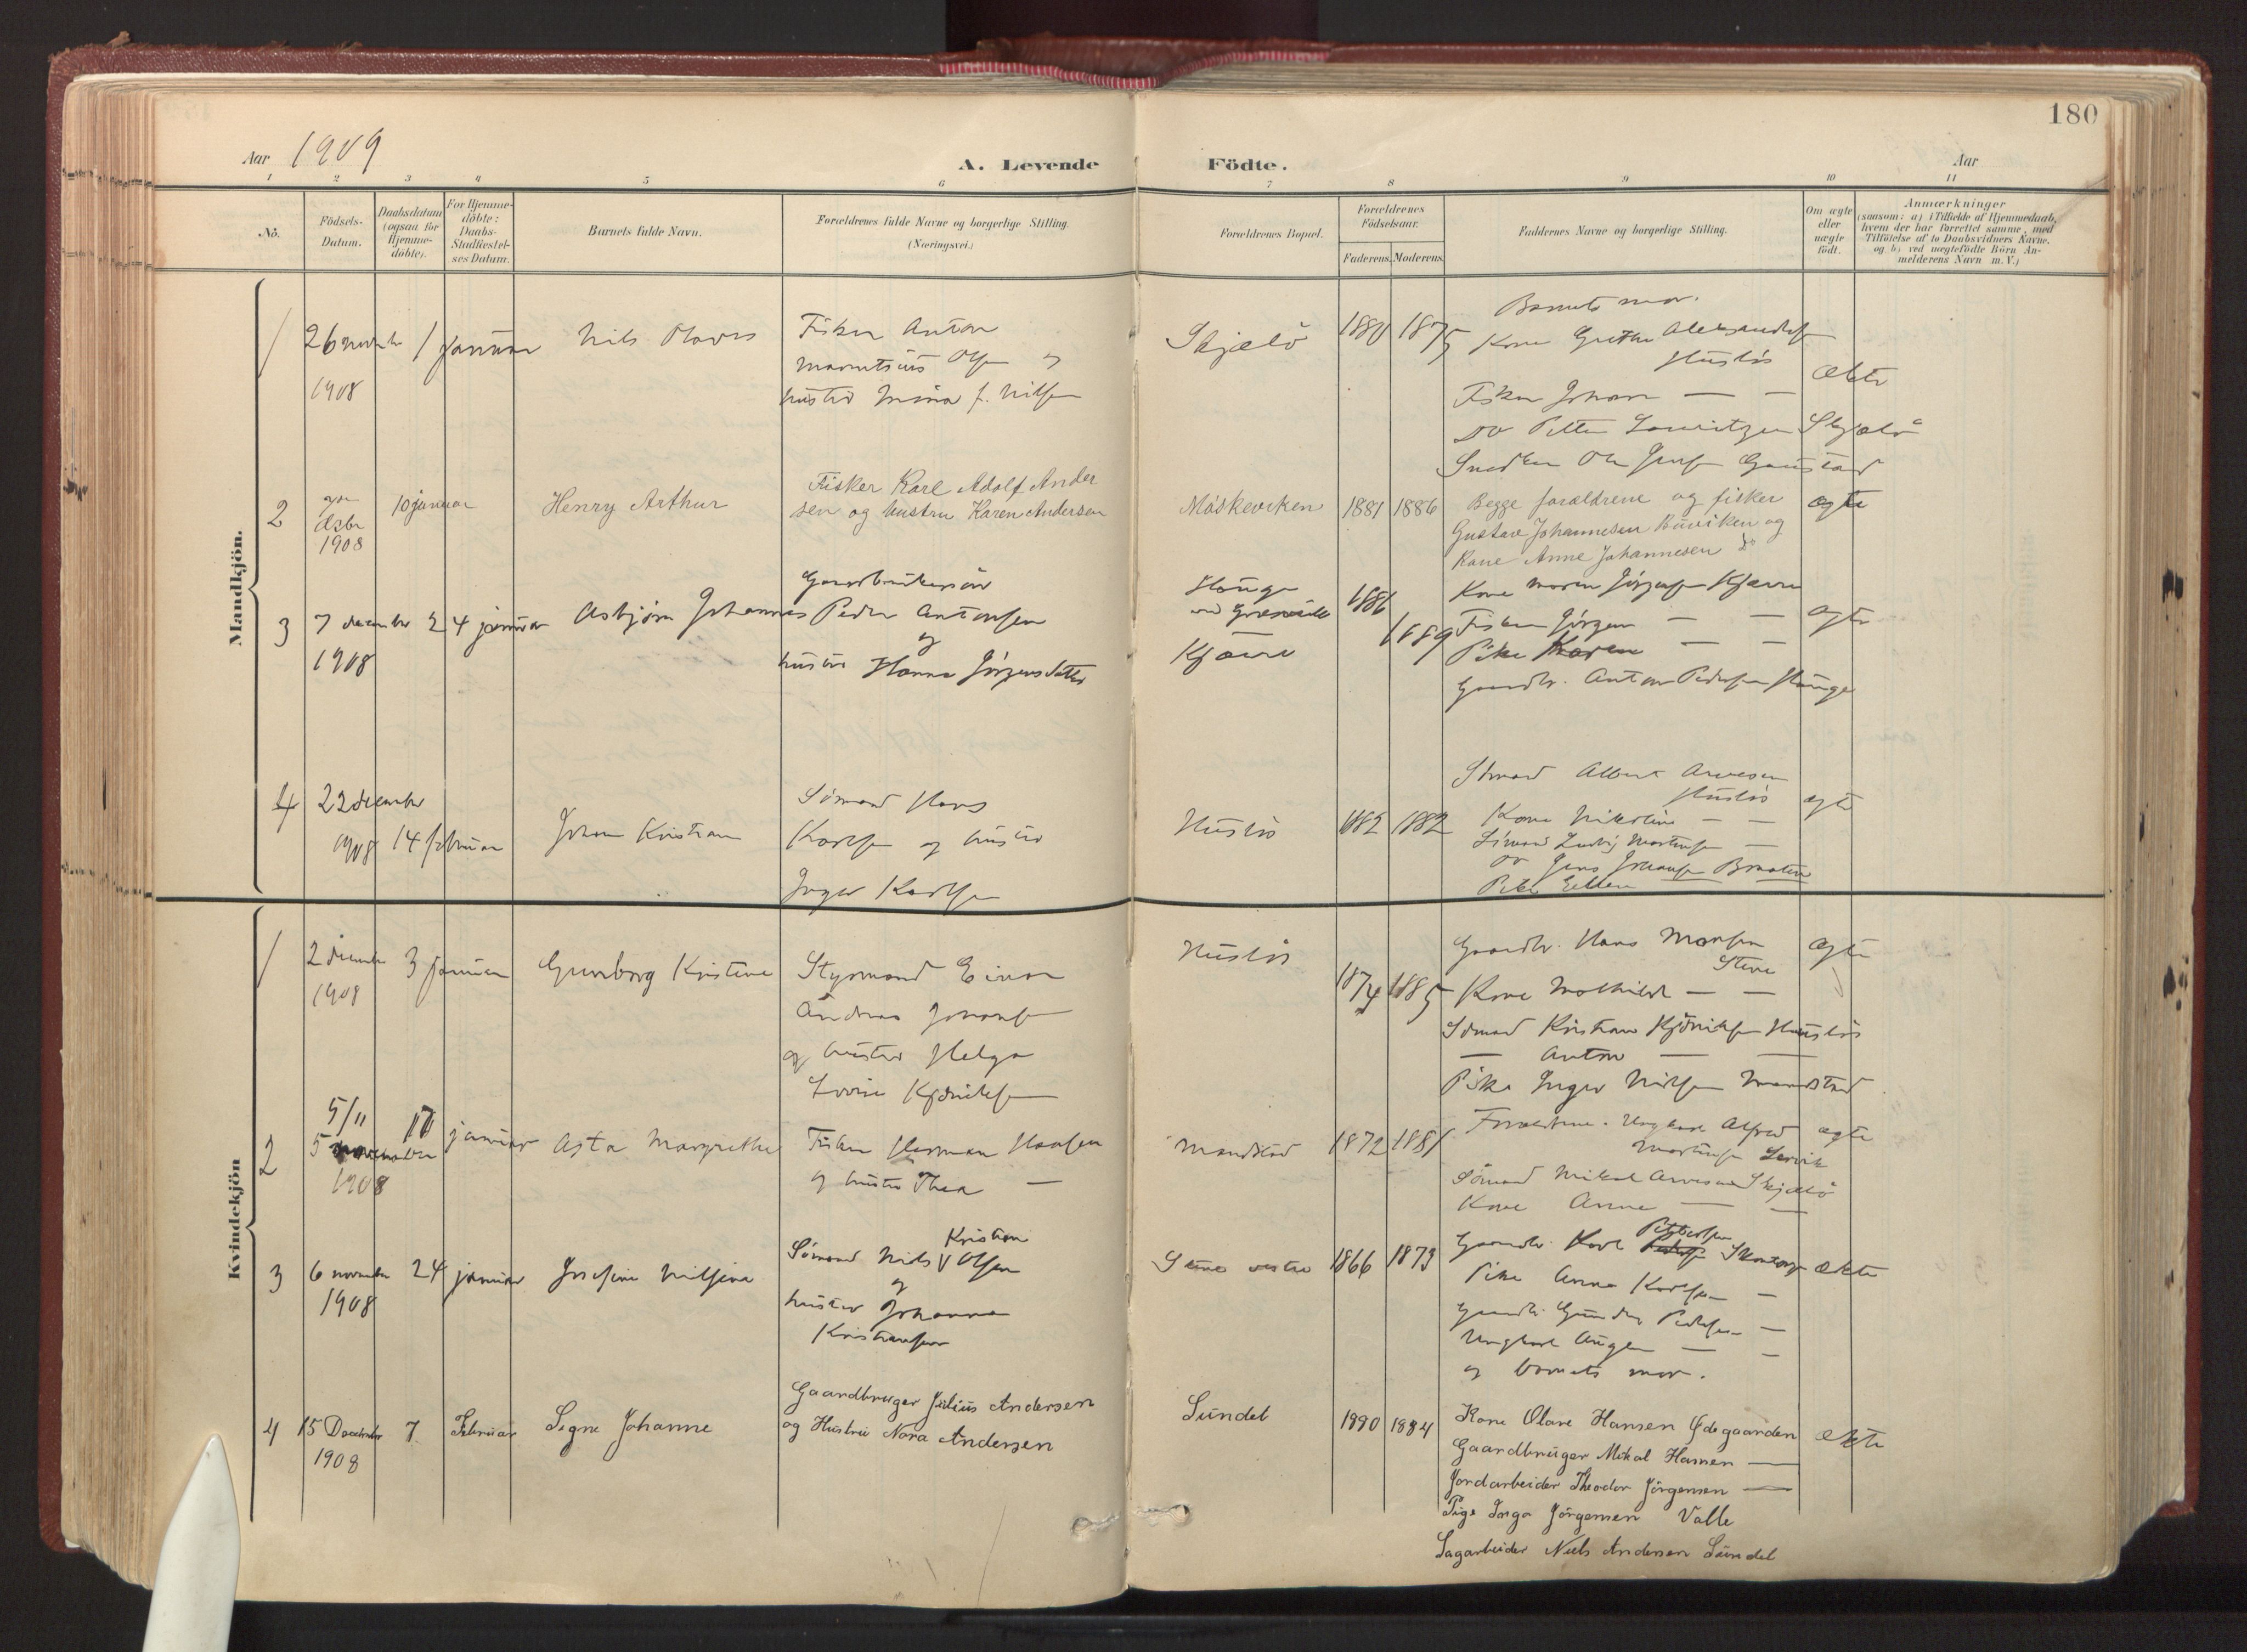 180
Aar 1909
A. Levende Födte.
Aar
1 2 3 4 5 6 7 8 9 10 11
No.
Födsels-Datum.
Daabsdatum (ogsaa for Hjemme-döbte).
For Hjemme-döbte: Daabs-Stadfæstel-ses Datum.
Barnets fulde Navn.
Forældrenes fulde Navne og borgerlige Stilling.
(Næringsvei.)
Forældrenes Bopæl.
Forældrenes Födselsaar.
Faderens. Moderens.
Faddernes Navne og borgerlige Stilling.
Om ægte eller uægte födt.
Anmærkninger
(saasom: a) i Tilfælde af Hjemmedaab,
hvem der har forrettet samme, med
Tilföielse af to Daabsvidners Navne.
og b) ved uægtefödte Börn An-
melderens Navn m. V.)
Mandkjön.
1
26 novembr
1908
1 januar
Nils Olaves
Fisker Anton
Mauritsius Olsen og
hustru Mina f. Nilsen
Skjælö
1880 1875
Barnets mor.
Kone Grethe Aleksandersen
Huslös
Fisker Johan — —
Do Petter Lauritzen Skjælö
Snedker Ole Jensen Gaustad
Ækte
2
Desbr
1908
10 januar
Henry Arthur
Fisker Karl Adolf Ander
sen og hustru Karen Andersen
Måskeviken
1881 1886
Begge forældrene og fisker
Gustave Johannesen Buviken og
Kone Anne Johannesen Do
ægte
3
7 december
1908
24 januar
Asbjörn Johannes
Gaardbrukersön
Peder Antonsen
og
hustru Hanna Jörgensdatter
Hauge
Kjære
1886
1889
Kone Maren Jörgensen Kjære
Fisker Jörgen — —
Pike Karen — —
Gaardbr. Anton Pedersen Hauge
ægte
4
22 december
1908
14 februar
Johan Kristian
Sömand Hans
Karlsen og hustru
Inger Karlsen
Huslös
1882 1882
Sömand Albert Arvesen
Huslös
Kone Nikoline — —
Sömand Ludvig Martinsen —
Do Jens Johansen Braaten
Pike Ellen
ægte
Kvindekjön
1
2 december
1908
3 januar
Gunborg Kristine
Styrmand Einar
Andreas Johansen
og hustru Helga
Lovise Kjöniksen
Huslös
1874 1885
Gaardbr. Hans Monsen
Stene
Kone Mathilde — —
Sömand Kristian Kjöniksen Huslös
— Anton — —
Pike Inger Nilsen Mandstad
ægte
2
5/11
5 november
1908
17 januar
Asta Margrethe
Fisker Herman Hansen
og hustru Thea —
Mandstad
1872 1881
Forældrene. Ungkarl Alfred
Martinsen Lervik
Sömand Mikal Arvesen Skjælö
Kone Anne — —
ægte
3
6 november
1908
24 januar
Josefine Nilsine
Kristian
Sömand Nils V Olsen
og
hustru Johanna
Kristiansen
Stene vestre
1866 1873
Gaardbr. Karl
Pike Anna Karlsen —
Gaardbr. Gunder Pedersen —
Ungkarl August — —
og barnets mor.
Ækte
4
15 December
1908
7 Februar
Signe Johanne
Gaardbruger Julius Andersen
og Hustru Nora Andersen
Sundet
1880 1884
Kone Olave Hansen Ödegaarden
Gaardbruger Mikal Hansen —
Jordarbeider Theodor Jörgensen —
Pige Inga Jörgensen Valle
Sagarbeider Niels Andersen Sundet
Ækte